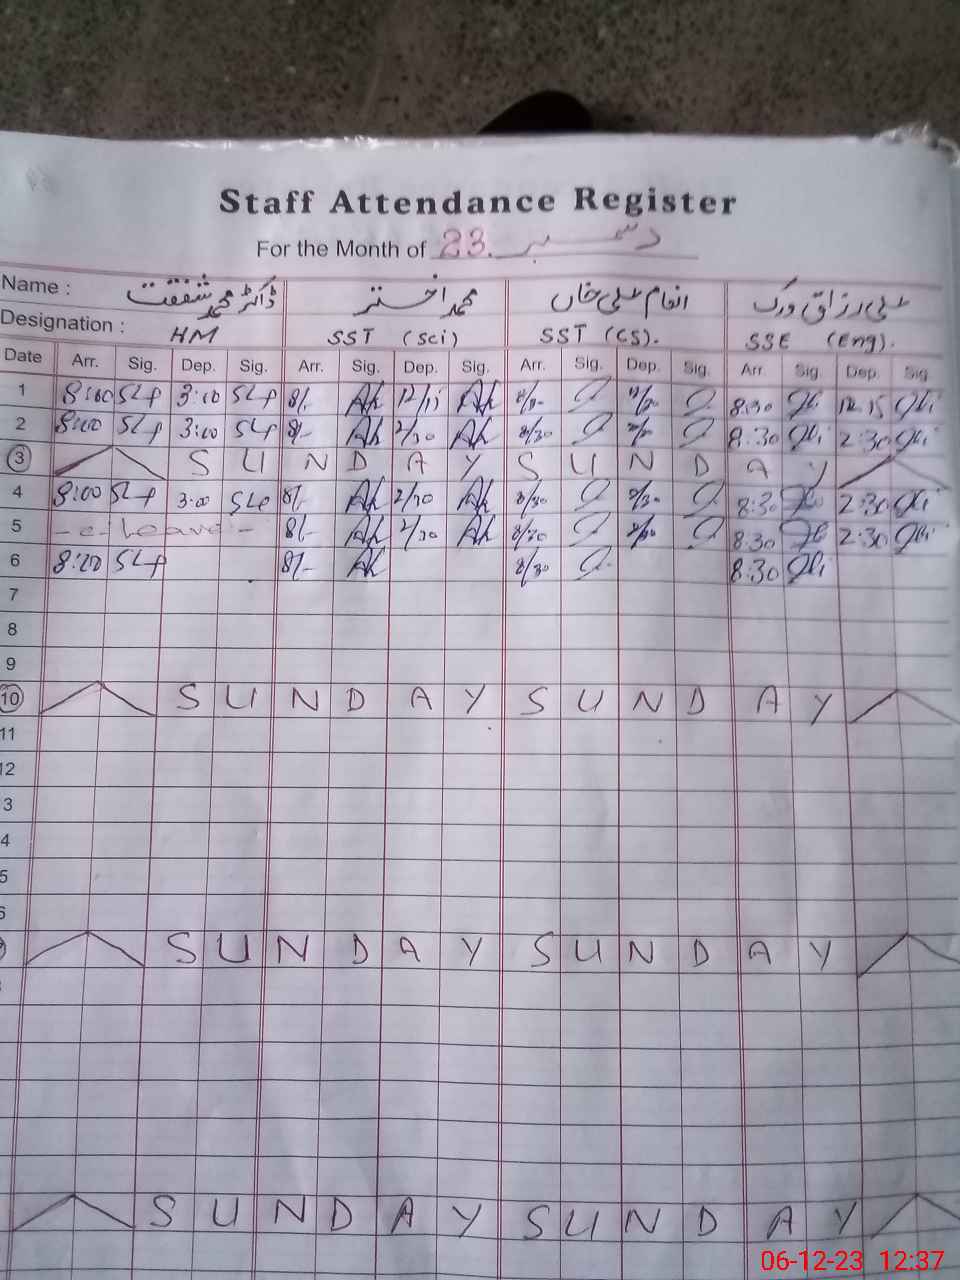 Staff Attendance Register
For the Month of دسمبر 23.
Name : ڈاکٹر محمد شفقت محمد اختر انعام علی خاں علی رزاق ورک
Designation : HM SST (Sci) SST (CS). SSE (Eng).
Date Arr. Sig. Dep. Sig. Arr. Sig. Dep. Sig. Arr. Sig. Dep. Sig. Arr. Sig. Dep. Sig.
1 8:00 SLP 3:00 SLP 8/- Ak 12/15 Ak 8/30 8:30 12:15
2 8:00 SLP 3:00 SLP 8/- Ak 2/30 Ak 8/30 8:30 2:30
3 SUNDAY SUNDAY
4 8:00 SLP 3:00 SLP 8/- Ak 2/30 Ak 8/30 2/30 8:30 2:30
5 - c - Leave - 8/- Ak 2/30 Ak 8/30 2/30 8:30 2:30
6 8:20 SLP 8/- Ak 8/30 8:30
7
8
9
10 SUNDAY SUNDAY
11
12
3
4
5
6
SUNDAY SUNDAY
SUNDAY SUNDAY
06-12-23 12:37